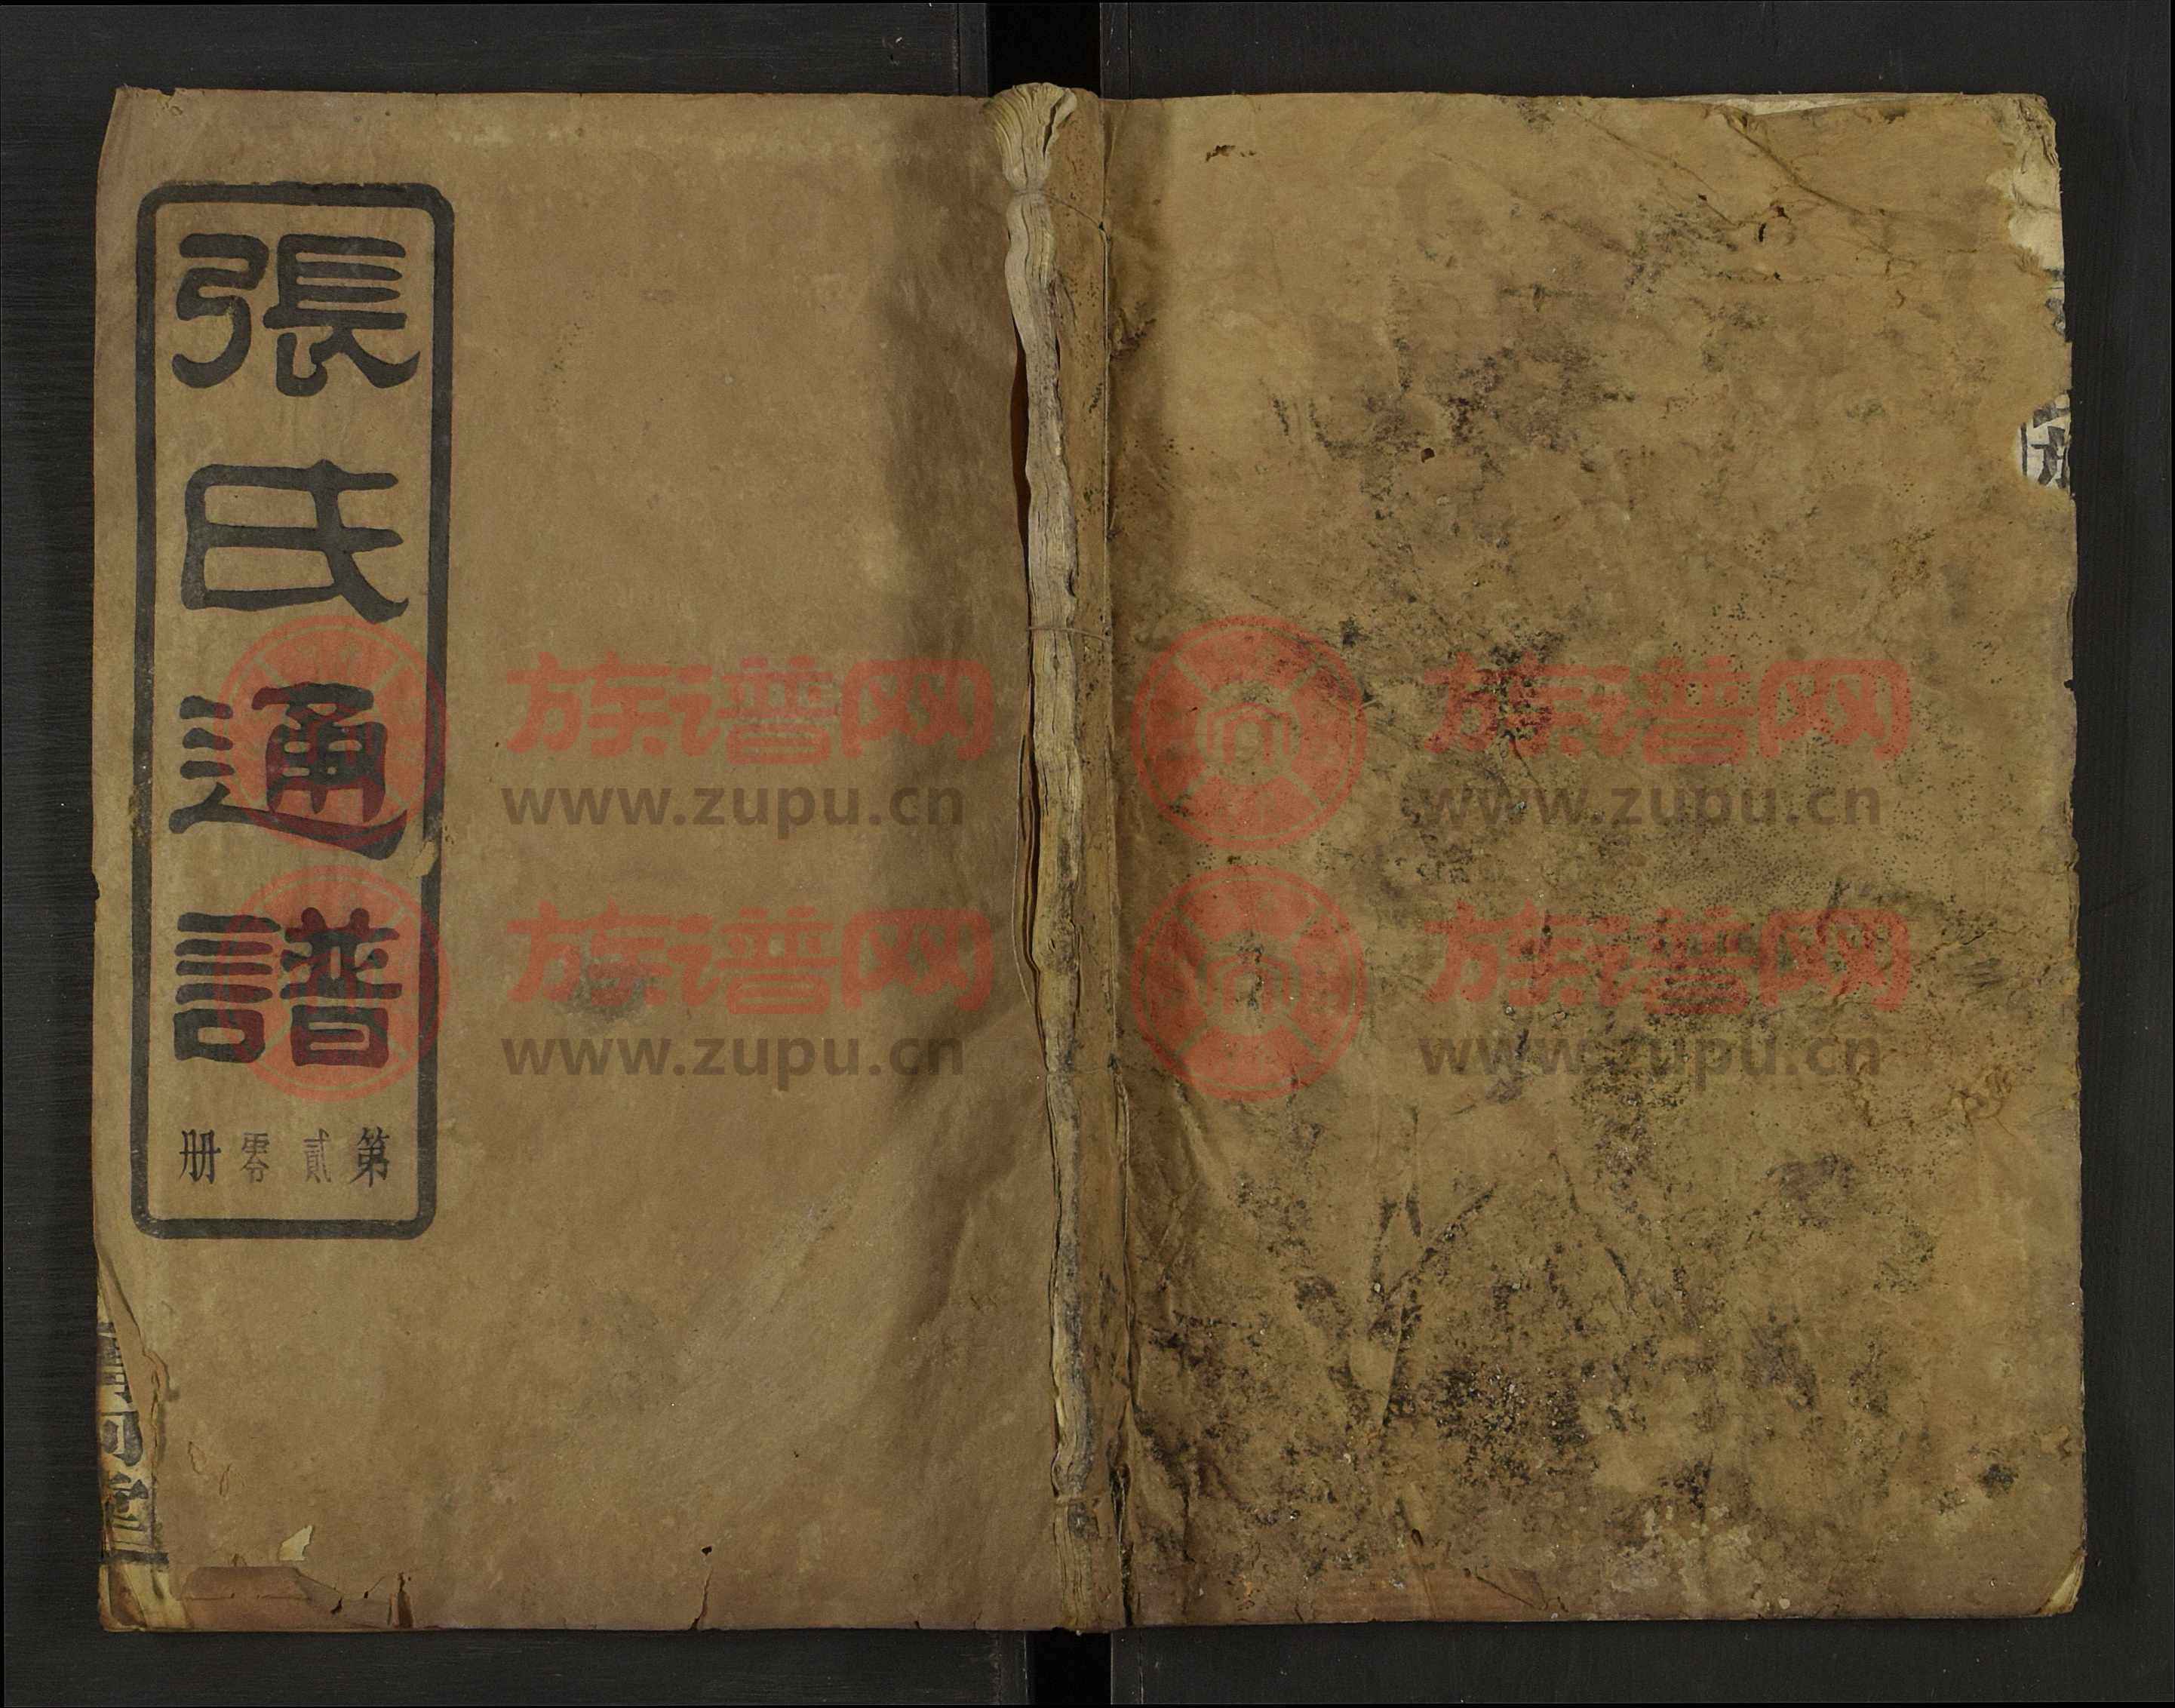 張氏通譜
第貳零册
族谱网
www.zupu.cn
族谱网
www.zupu.cn
族谱网
www.zupu.cn
族谱网
www.zupu.cn